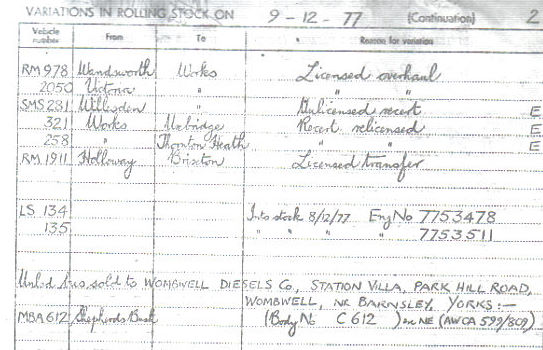 VARIATIONS IN ROLLING STOCK ON 9 - 12 - 77 (Continuation) 2
Vehicle number From To Reason for variation
RM 978 Wandsworth Works Licensed overhaul
2050 Victoria " " "
SMS 281 Willesden " Unlicensed recert E
321 Works Uxbridge Recert relicensed E
258 " Thornton Heath " " E
RM 1911 Holloway Brixton Licensed transfer
LS 134 Into stock 8/12/77 Eng No 7753478
135 " " " " 7753511
Unlcd bus sold to WOMBWELL DIESELS Co, STATION VILLA, PARK HILL ROAD,
WOMBWELL, NR BARNSLEY, YORKS :-
MBA 612 Shepherds Bush (Body No C 612) NE (AWCA 599/802)